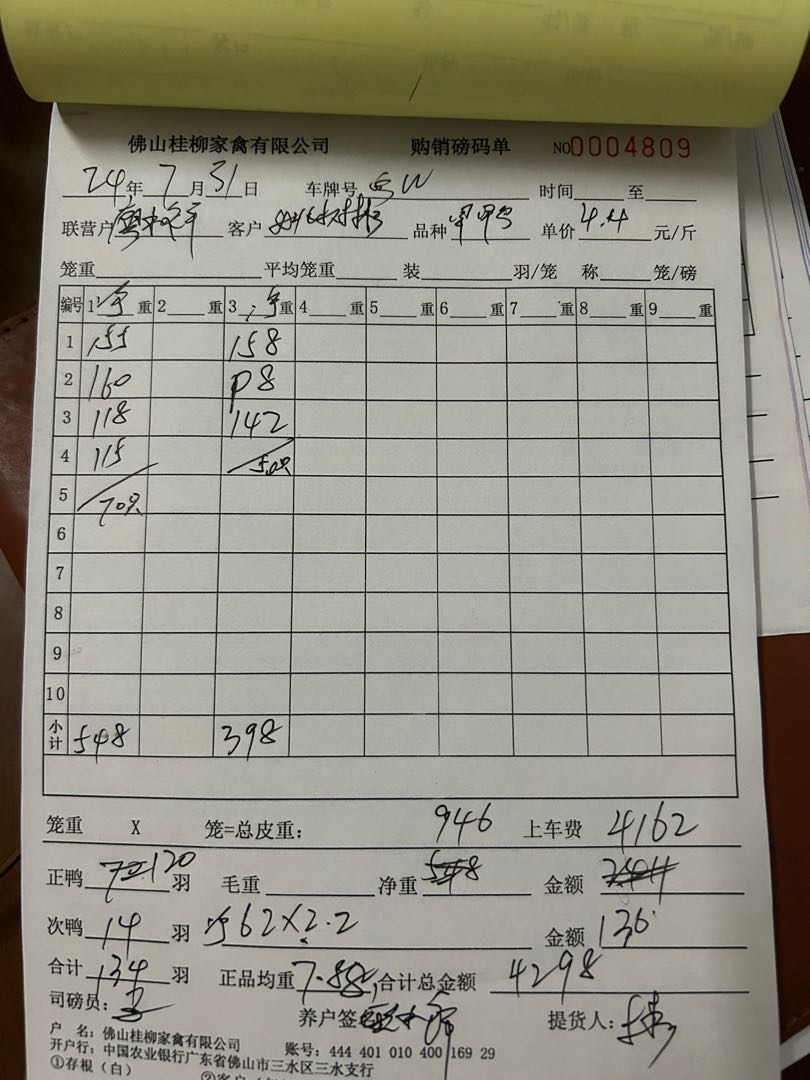 佛山桂柳家禽有限公司 购销磅码单 NO0004809
24年7月31日 车牌号 时间 至
联营户 客户 品种 单价4.4元/斤
笼重 平均笼重 装 羽/笼 称 笼/磅
编号 1净重 2 重 3净重 4 重 5 重 6 重 7 重 8 重 9 重
1 155 158
2 160
3 118 142
4 115 50只
5 70只
6
7
8
9
10
小计 548 398
笼重 X 笼=总皮重: 946 上车费 4162
正鸭 120 羽 毛重 净重 金额
次鸭 14 羽 净62X2.2 金额 136
合计 134 羽 正品均重7.88 合计总金额 4298
司磅员: 养户签 提货人:
户 名: 佛山桂柳家禽有限公司 账号: 444 401 010 400 169 29
开户行: 中国农业银行广东省佛山市三水区三水支行
①存根（白）